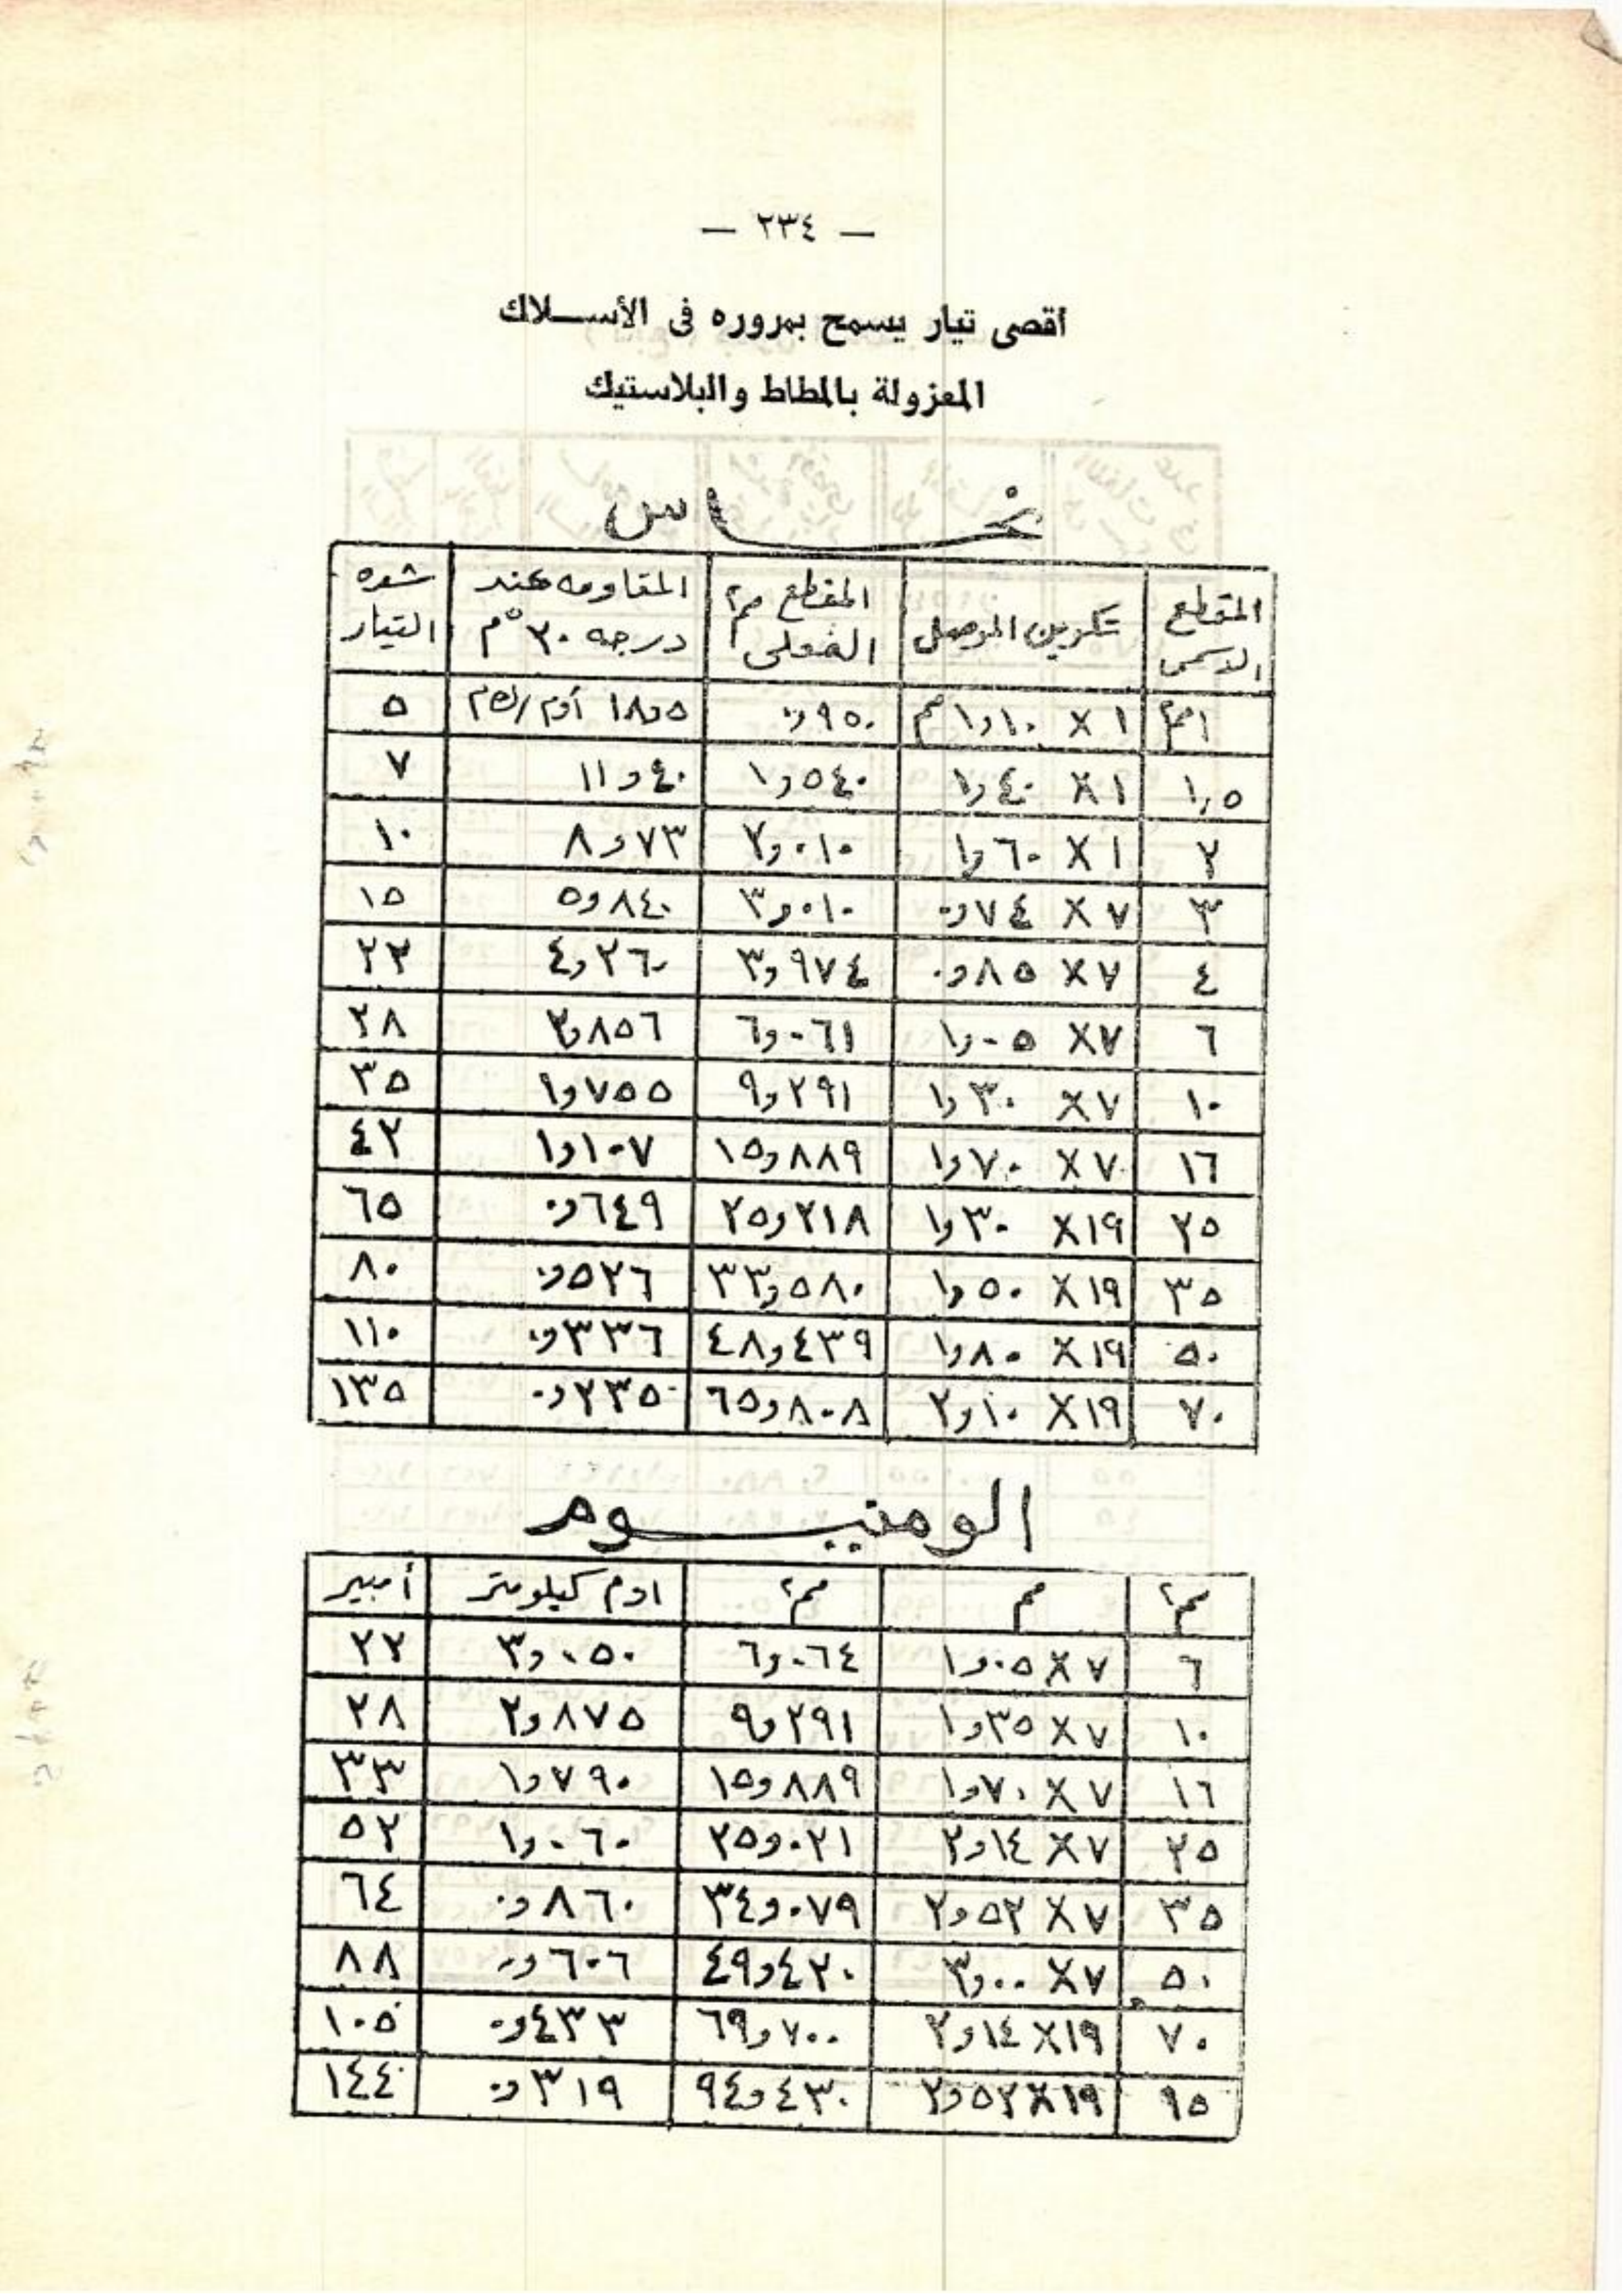 — ٢٣٤ —
أقصى تيار يسمح بمروره فى الأسلاك
المعزولة بالمطاط والبلاستيك
نحاس
المقطع الاسمى | تكوين الموصل | المقطع مم٢ الفعلى | المقاومه عند درجه ٢٠ °م | شده التيار
١مم٢ | ١ X ١٫١٠ مم | ٠٫٩٥٠ | ١٨٫٥٥ أوم/كم | ٥
١٫٥ | ١ X ١٫٤٠ | ١٫٥٤٠ | ١١٫٤٠ | ٧
٢ | ١ X ١٫٦٠ | ٢٫٠١٠ | ٨٫٧٣ | ١٠
٣ | ٧ X ٠٫٧٤ | ٣٫٠١٠ | ٥٫٨٤٠ | ١٥
٤ | ٧ X ٠٫٨٥ | ٣٫٩٧٤ | ٤٫٢٦٠ | ٢٢
٦ | ٧ X ١٫٠٥ | ٦٫٠٦١ | ٢٫٨٥٦ | ٢٨
١٠ | ٧ X ١٫٣٠ | ٩٫٢٩١ | ١٫٧٥٥ | ٣٥
١٦ | ٧ X ١٫٧٠ | ١٥٫٨٨٩ | ١٫١٠٧ | ٤٢
٢٥ | ١٩ X ١٫٣٠ | ٢٥٫٢١٨ | ٠٫٦٤٩ | ٦٥
٣٥ | ١٩ X ١٫٥٠ | ٣٣٫٥٨٠ | ٠٫٥٢٦ | ٨٠
٥٠ | ١٩ X ١٫٨٠ | ٤٨٫٤٣٩ | ٠٫٣٣٦ | ١١٠
٧٠ | ١٩ X ٢٫١٠ | ٦٥٫٨٠٨ | ٠٫٢٣٥ | ١٣٥
الومنيوم
مم٢ | مم | مم٢ | اوم كيلومتر | أمبير
٦ | ٧ X ١٫٠٥ | ٦٫٠٦٤ | ٣٫٠٥٠ | ٢٢
١٠ | ٧ X ١٫٣٥ | ٩٫٢٩١ | ٢٫٨٧٥ | ٢٨
١٦ | ٧ X ١٫٧٠ | ١٥٫٨٨٩ | ١٫٧٩٠ | ٣٣
٢٥ | ٧ X ٢٫١٤ | ٢٥٫٠٢١ | ١٫٠٦٠ | ٥٢
٣٥ | ٧ X ٢٫٥٢ | ٣٤٫٠٧٩ | ٠٫٨٦٠ | ٦٤
٥٠ | ٧ X ٣٫٠٠ | ٤٩٫٤٢٠ | ٠٫٦٠٦ | ٨٨
٧٠ | ١٩ X ٢٫١٤ | ٦٩٫٧٠٠ | ٠٫٤٣٣ | ١٠٥
٩٥ | ١٩ X ٢٫٥٢ | ٩٤٫٤٣٠ | ٠٫٣١٩ | ١٤٤